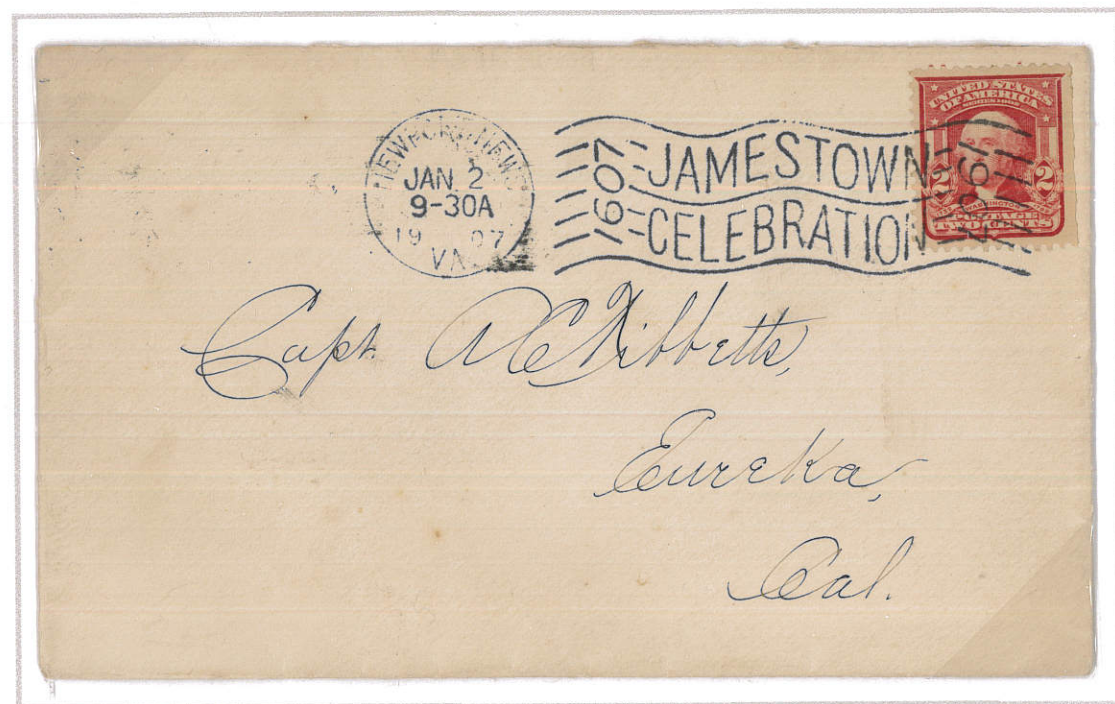 NEWPORT NEWS
JAN 2
9-30A
1907
VA.
1607
JAMESTOWN
CELEBRATION
1907
UNITED STATES
OF AMERICA
SERIES 1902
2 2
WASHINGTON
POSTAGE
TWO CENTS
Capt. A C Tibbetts,
Eureka,
Cal.